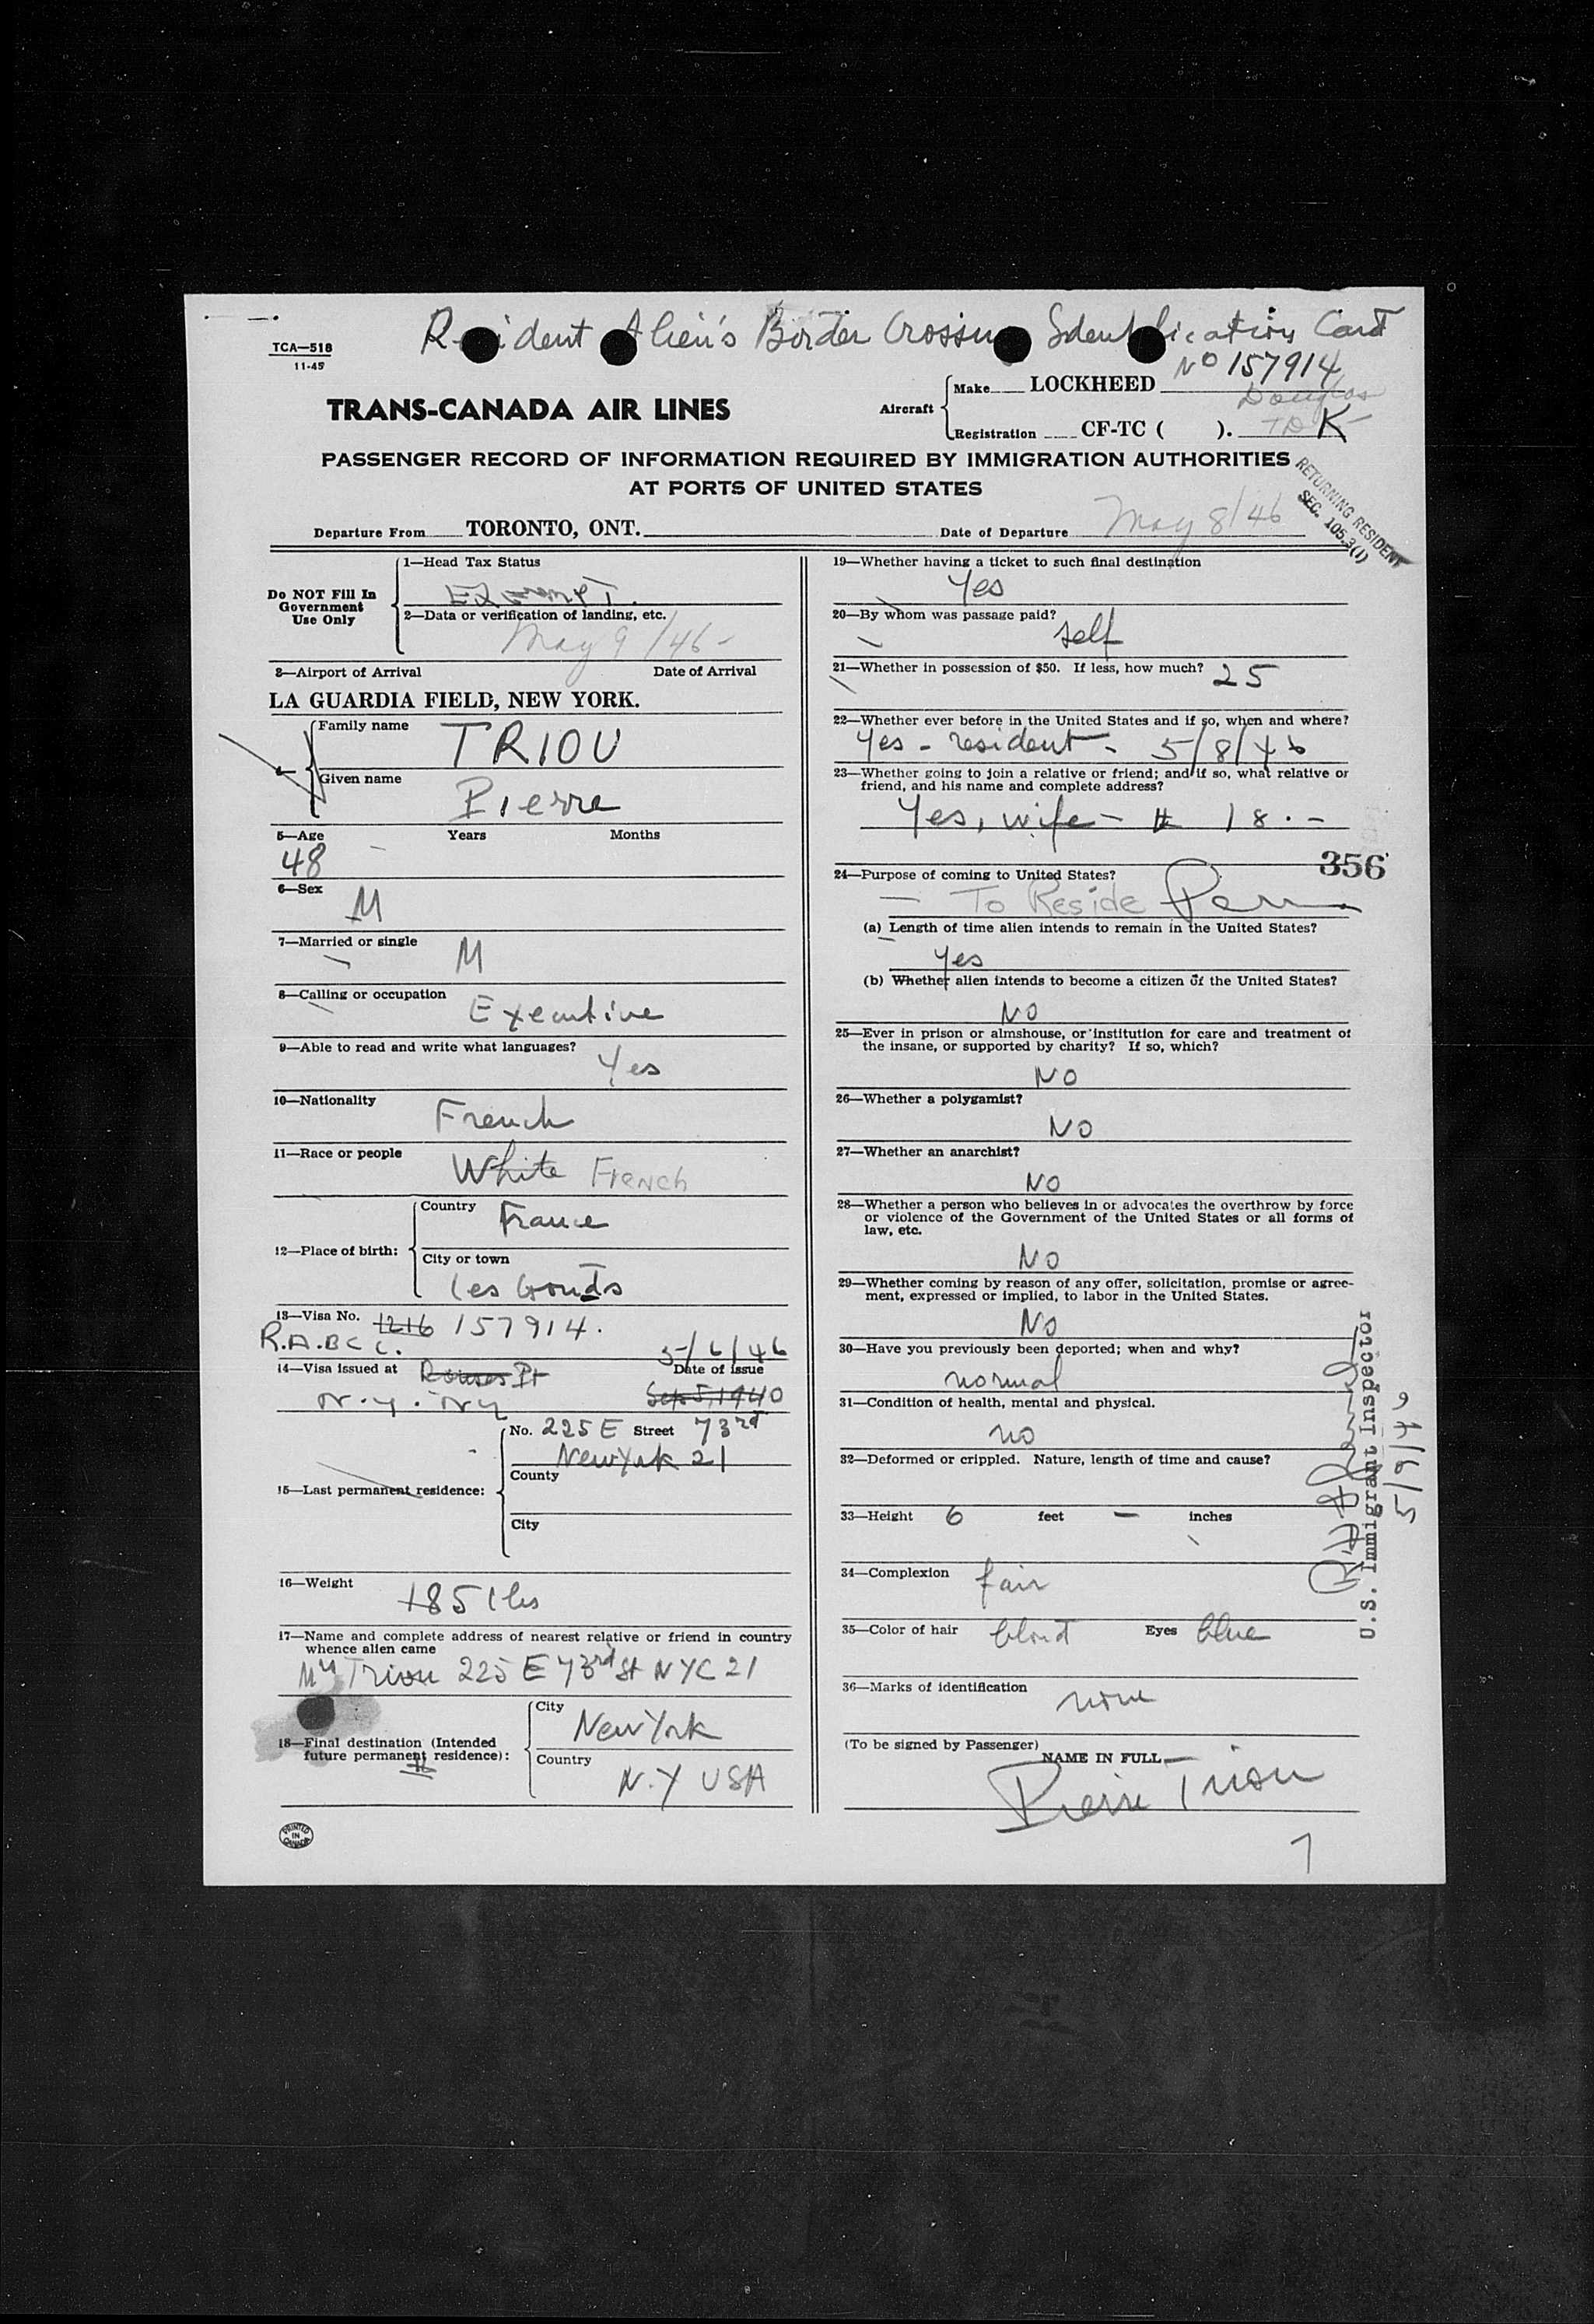 Resident Alien's Border Crossing Identification Card
No 157914
TCA—518
11-45
TRANS-CANADA AIR LINES
Aircraft
Make LOCKHEED
Douglas
Registration CF-TC ( ). TD K
PASSENGER RECORD OF INFORMATION REQUIRED BY IMMIGRATION AUTHORITIES
AT PORTS OF UNITED STATES
RETURNING RESIDENT
SEC. 105.3(1)
Departure From TORONTO, ONT.
Date of Departure May 8/46
Do NOT Fill In
Government
Use Only
1—Head Tax Status
Exempt.
2—Data or verification of landing, etc.
May 9/46-
3—Airport of Arrival Date of Arrival
LA GUARDIA FIELD, NEW YORK.
Family name TRIOU
Given name
Pierre
5—Age Years Months
48 -
6—Sex
M
7—Married or single
M
8—Calling or occupation
Executive
9—Able to read and write what languages?
Yes
10—Nationality
French
11—Race or people
White French
12—Place of birth:
Country France
City or town
Les Gonds
13—Visa No. 1216 157914.
R.A.B.C.C. 5/6/46
14—Visa issued at Rouses Pt Date of issue
N.Y. NY Sep 5, 1940
15—Last permanent residence:
No. 225 E Street 73rd
New York 21
County
City
16—Weight
185 lbs
17—Name and complete address of nearest relative or friend in country
whence alien came
Mrs Triou 225 E 73rd St NYC 21
18—Final destination (Intended
future permanent residence):
#
City
New York
Country
N.Y USA
PRINTED
IN
CANADA
19—Whether having a ticket to such final destination
Yes
20—By whom was passage paid?
self
21—Whether in possession of $50. If less, how much? 25
22—Whether ever before in the United States and if so, when and where?
Yes - resident - 5/8/46
23—Whether going to join a relative or friend; and if so, what relative or
friend, and his name and complete address?
Yes, wife - # 18.-
356
24—Purpose of coming to United States?
- To Reside Perm
(a) Length of time alien intends to remain in the United States?
Yes
(b) Whether alien intends to become a citizen of the United States?
NO
25—Ever in prison or almshouse, or institution for care and treatment of
the insane, or supported by charity? If so, which?
NO
26—Whether a polygamist?
NO
27—Whether an anarchist?
NO
28—Whether a person who believes in or advocates the overthrow by force
or violence of the Government of the United States or all forms of
law, etc.
NO
29—Whether coming by reason of any offer, solicitation, promise or agree-
ment, expressed or implied, to labor in the United States.
No
30—Have you previously been deported; when and why?
normal
31—Condition of health, mental and physical.
no
32—Deformed or crippled. Nature, length of time and cause?
33—Height 6 feet — inches
34—Complexion fair
35—Color of hair blond Eyes blue
36—Marks of identification
none
(To be signed by Passenger)
NAME IN FULL
Pierre Triou
U.S. Immigrant Inspector
5/9/46
7